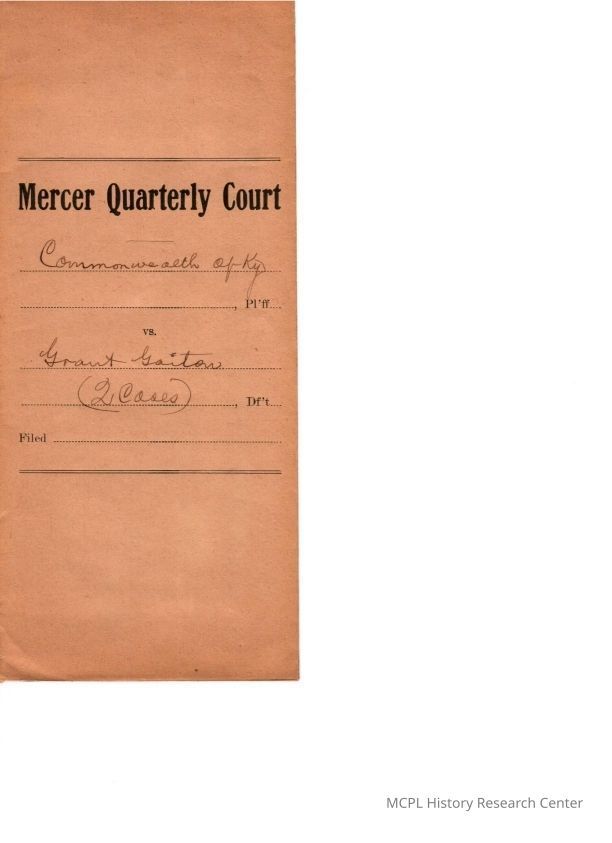 Mercer Quarterly Court
Commonwealth of Ky
, Pl'ff.
vs.
Grant Gaiton
(2 Cases)
, Df't.
Filed
MCPL History Research Center